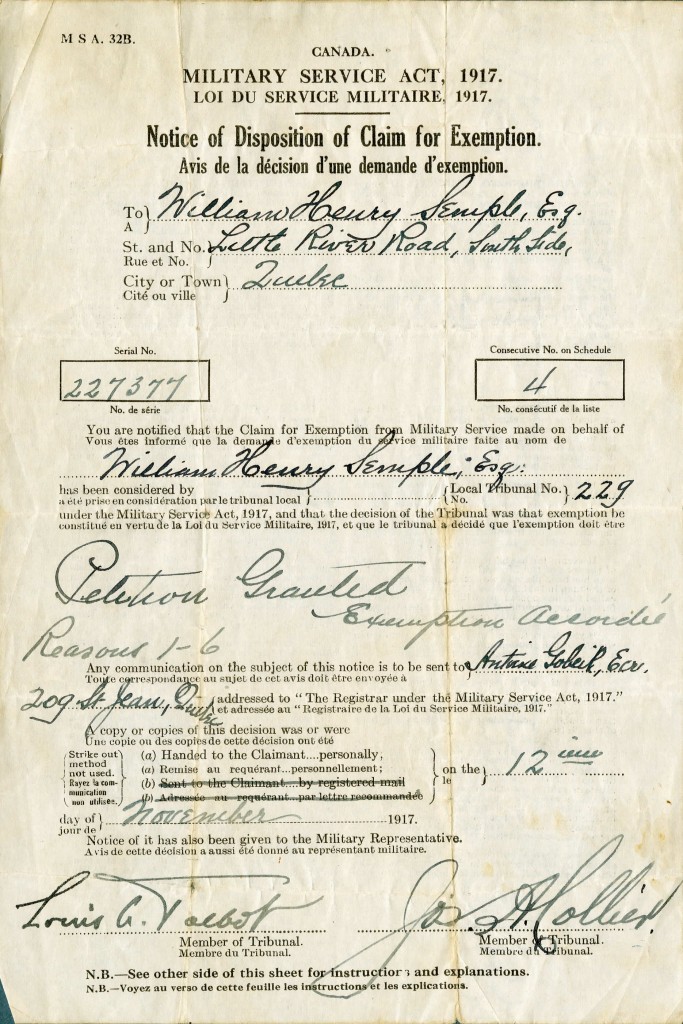 M S A. 32B.
CANADA.
MILITARY SERVICE ACT, 1917.
LOI DU SERVICE MILITAIRE, 1917.
Notice of Disposition of Claim for Exemption.
Avis de la décision d'une demande d'exemption.
To } William Henry Semple, Esq.
A
St. and No. } Little River Road, South Side,
Rue et No.
City or Town } Quebec
Cité ou ville
Serial No.
Consecutive No. on Schedule
227377
4
No. de série
No. consécutif de la liste
You are notified that the Claim for Exemption from Military Service made on behalf of
Vous êtes informé que la demande d'exemption du service militaire faite au nom de
William Henry Semple, Esq.
has been considered by } { Local Tribunal No. } 229
a été prise en considération par le tribunal local } { No.
under the Military Service Act, 1917, and that the decision of the Tribunal was that exemption be
constitué en vertu de la Loi du Service Militaire, 1917, et que le tribunal a décidé que l'exemption doit être
Petition Granted
Exemption accordée
Reasons 1-6
Any communication on the subject of this notice is to be sent to } Antoine Gobeil, Ecr.
Toute correspondance au sujet de cet avis doit être envoyée à
209 St Jean, Quebec { addressed to "The Registrar under the Military Service Act, 1917."
et adressée au "Registraire de la Loi du Service Militaire, 1917."
A copy or copies of this decision was or were
Une copie ou des copies de cette décision ont été
Strike out method not used. Rayez la communication non utilisée.
(a) Handed to the Claimant....personally,
(a) Remise au requérant...personnellement;
(b) Sent to the Claimant....by registered mail
(b) Adressée au requérant...par lettre recommandée
on the } 12 ième
le
day of } November 1917.
jour de
Notice of it has also been given to the Military Representative.
Avis de cette décision a aussi été donné au représentant militaire.
Louis A. Talbot
Jos. A. Collier
Member of Tribunal.
Membre du Tribunal.
Member of Tribunal.
Membre du Tribunal.
N.B.—See other side of this sheet for instructions and explanations.
N.B.—Voyez au verso de cette feuille les instructions et les explications.